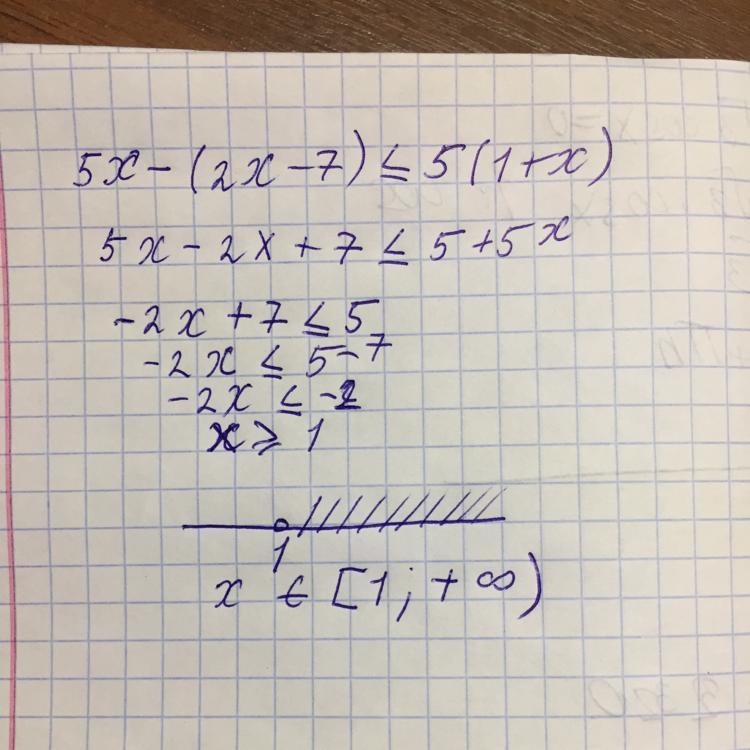 5x - (2x - 7) ≤ 5(1+x)
5x - 2x + 7 ≤ 5 + 5x
-2x + 7 ≤ 5
-2x ≤ 5 - 7
-2x ≤ -2
x ≥ 1
1
x ∈ [1; + ∞)